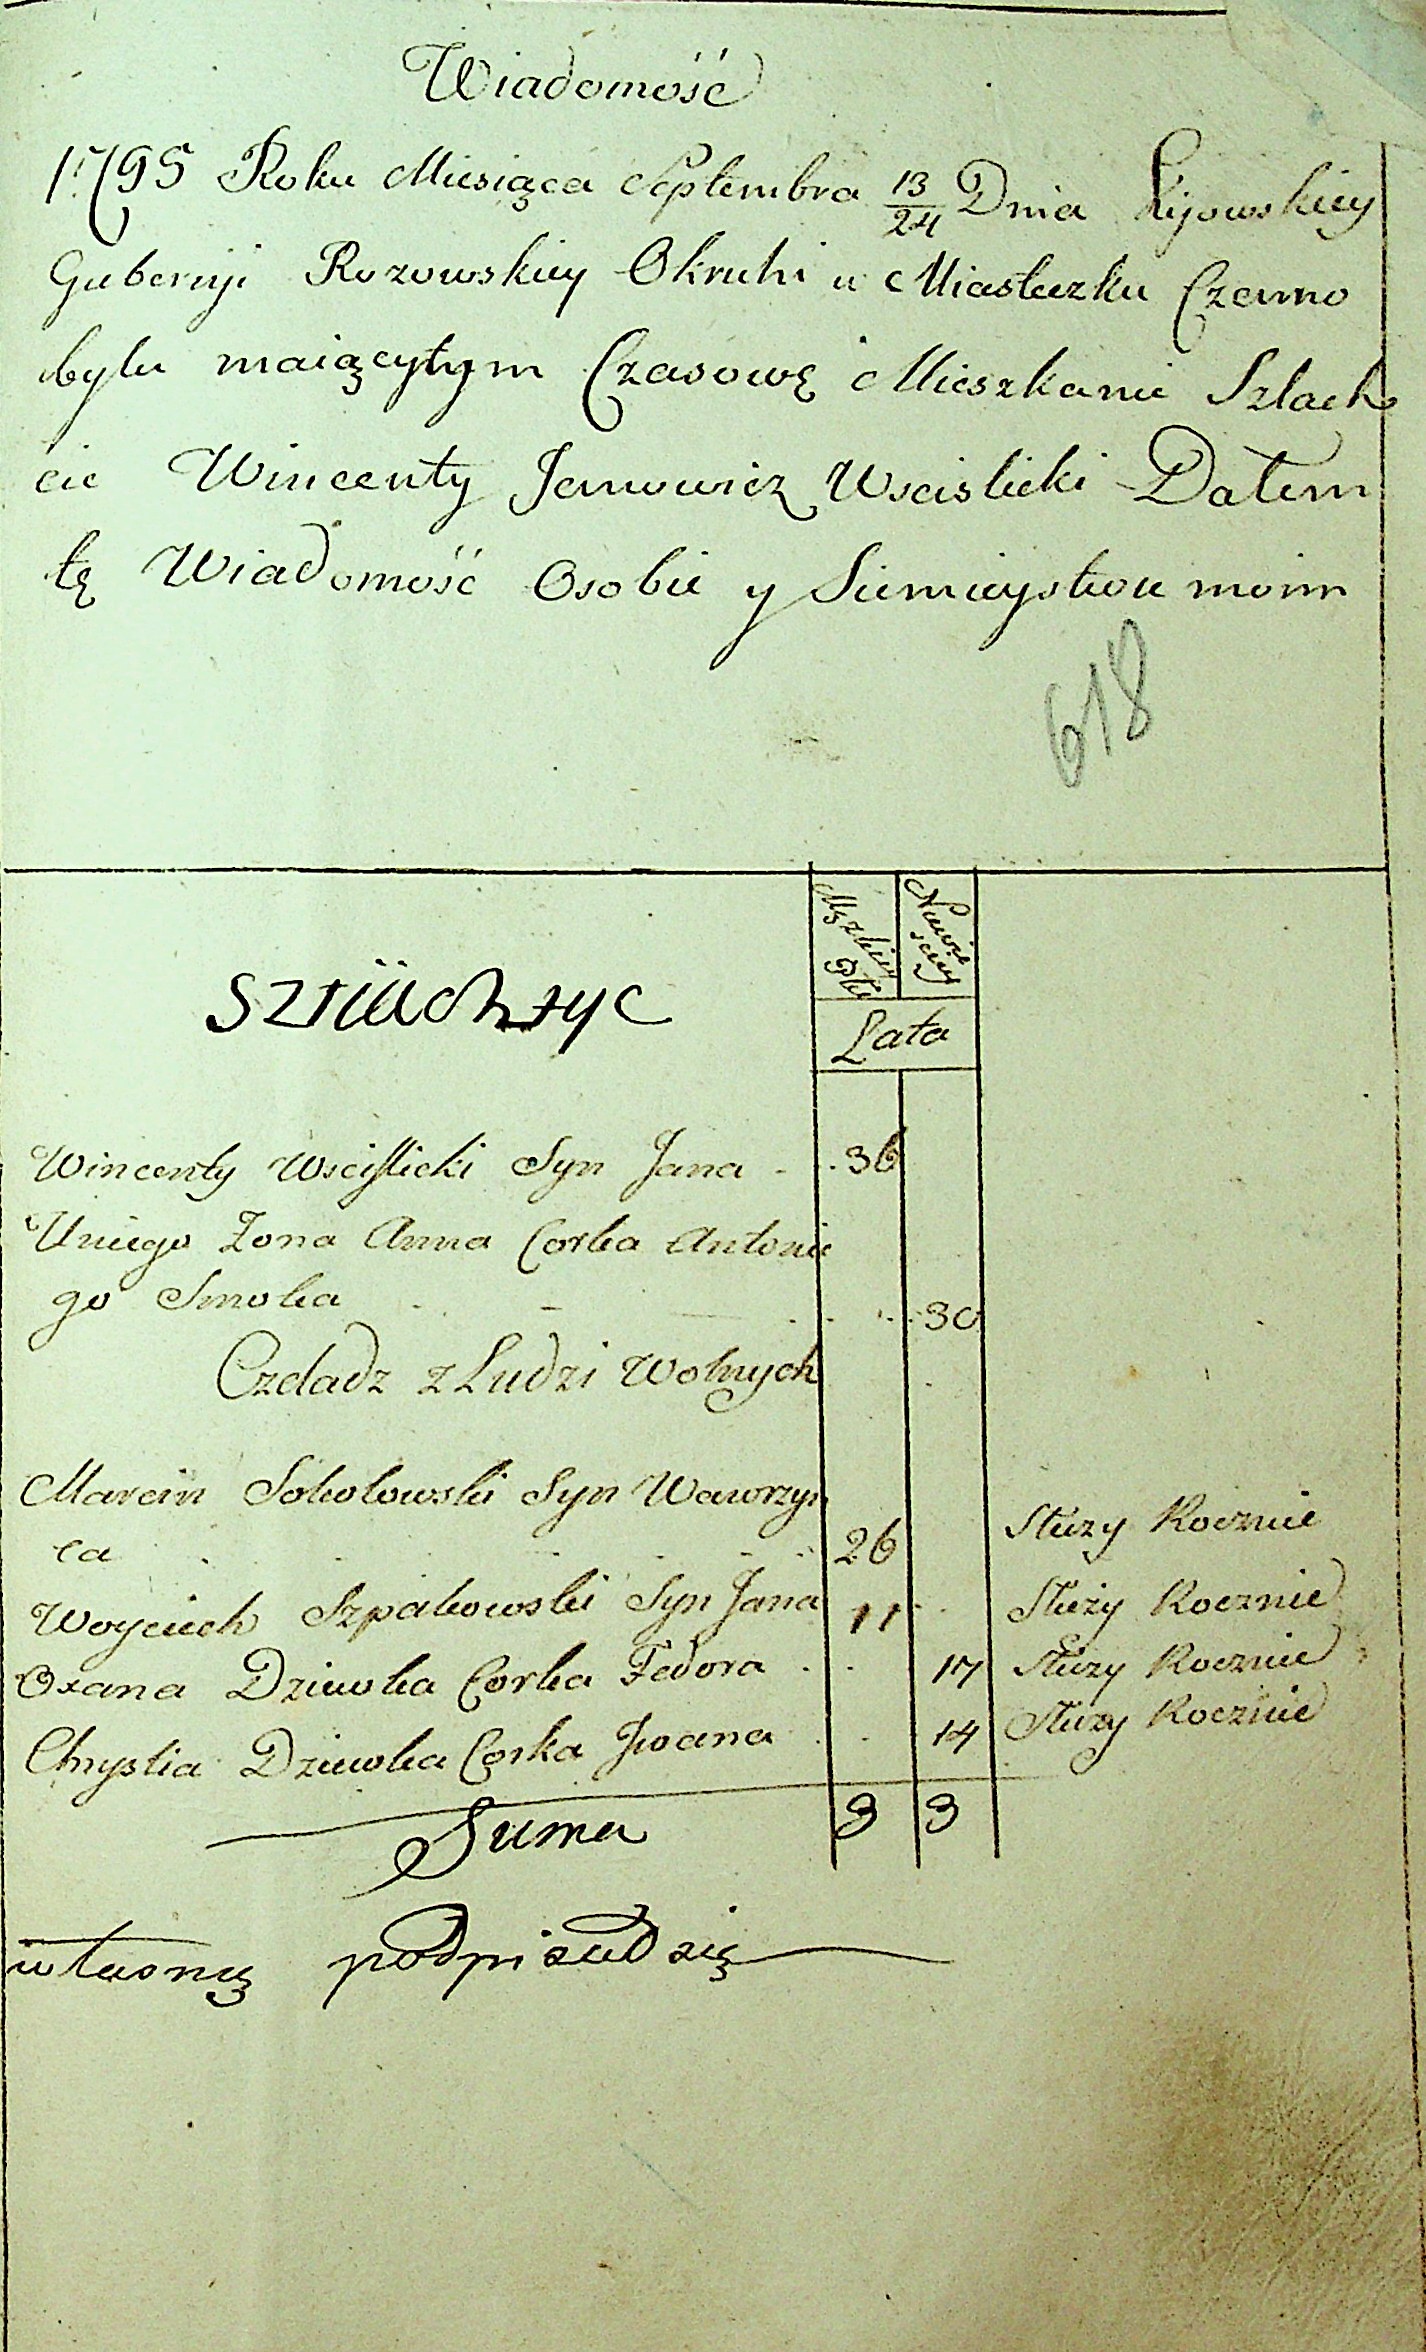 Wiadomość
1795 Roku Miesiąca Septembra 13/24 Dnia Kijowskiey
Guberniji Rozowskiey Okruhi w Miasteczku Czerno
bylu maiącytym Czasowę Mieszkanie Szlach
cic Wincenty Janowicz Wscislicki Dałem
tę Wiadomość Osobie y Siemieystwu moim
618
Męzkiey Płci
Niewie sciey
Lata
Wincenty Wscislicki Syn Jana 36
Uniego Zona Anna Corka Antonie
go Smoka 30
Czeladz z Ludzi Wolnych
Marcin Sokołowski Syn Wawrzyn
ca 26 Służy Rocznie
Woyciech Szpakowski Syn Jana 11 Służy Rocznie
Oxana Dziewka Corka Fedora 17 Służy Rocznie
Chrystia Dziewka Corka Iwana 14 Służy Rocznie
Suma 3 3
własnę podpisał się